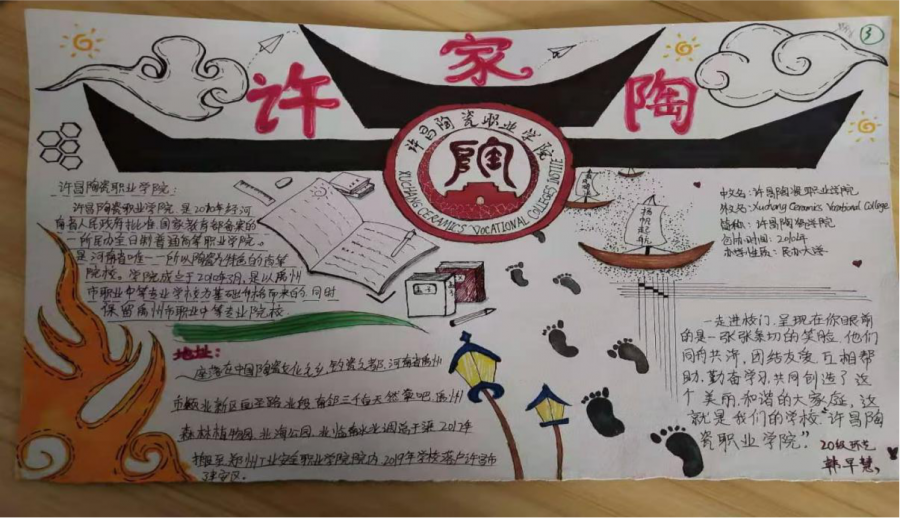 3
许家陶
许昌陶瓷职业学院
陶
XUCHANG CERAMICS VOCATIONAL COLLEGES
许昌陶瓷职业学院:
许昌陶瓷职业学院,是2010年经河
南省人民政府批准、国家教育部备案的
一所民办全日制普通高等职业学院。
是河南省唯一一所以陶瓷为特色的高等
院校。学院成立于2010年3月,是以禹州
市职业中等专业学校为基础升格而来的,同时
保留禹州市职业中等专业学校
地址:
座落在中国陶瓷文化之乡,钧瓷之都,河南省禹州
市
森林植物园,北海公园
2017年
搬至郑州工业安全职业学院院内,2019年学校落户许昌市
建安区。
扬帆起航
中文名:许昌陶瓷职业学院
外文名:Xuchang Ceramics Vocational College
简称:许昌陶瓷学院
创办时间:2010年
办学性质:民办大学
一走进校门,呈现在你眼前
的是一张张亲切的笑脸,他们
同舟共济,团结友爱,互相帮
助,勤奋学习,共同创造了这
个美丽,和谐的大家庭,这
就是我们的学校“许昌陶
瓷职业学院”
20级
韩早慧